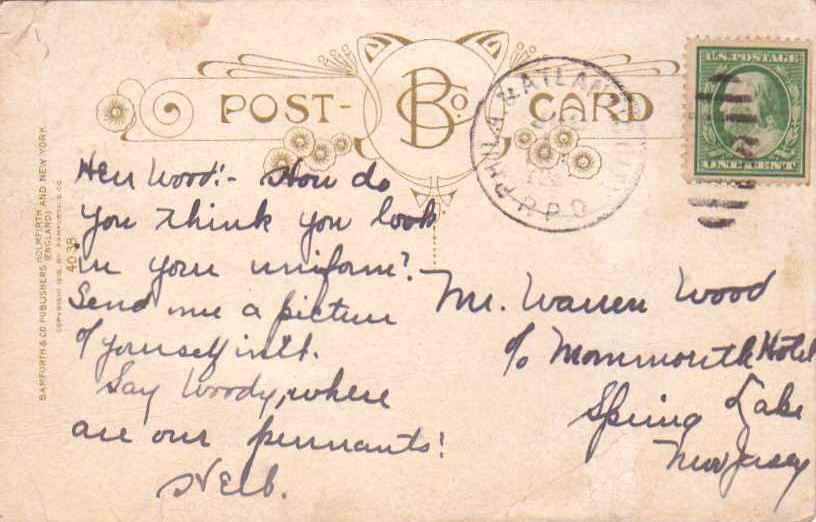 POST- B Co CARD
U.S. POSTAGE
ONE CENT
PHILA & ATLAN
R.P.O.
BAMFORTH & CO PUBLISHERS HOLMFIRTH (ENGLAND) AND NEW YORK
COPYRIGHT 1910, BY BAMFORTH & CO
4038
Wood:- How do
you think you look
in your uniform?
Send me a picture
of yourself in it.
Say Woody, where
are our pennants!
Mr. Warren Wood
c/o Monmouth Hotel
Spring Lake
New Jersey